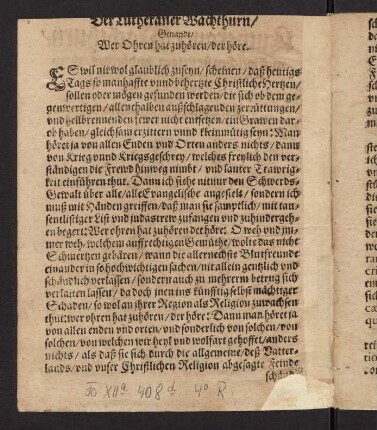 Der Lutheraner Wachthurn/
Genandt/
Wer Ohren hat zuhören/der höre.
ES wil nie wol glaublich zuseyn/scheinen/daß heutigs
Tags so manhaffte vnnd behertzte Christliche Hertzen/
sollen oder mögen gefunden werden/die sich ob dem ge-
genwertigen/allenthalben außschlagenden zerrüttungen/
vnd hellbrennenden fewer nicht entsetzen/ein Grawen dar-
ob haben/gleichsam erzittern vnnd kleinmütig seyn: Man
höret ja von allen Enden vnd Orten anders nichts/dann
von Krieg vnnd Kriegsgeschrey/welches freylich den ver-
ständigen die Frewd hinweg nimbt/vnd lauter Trawrig-
keit einführen thut. Dann ich sihe nit nur den Schwerds-
Gewalt über alle/alle Evangelische angesetzt/sondern ich
muß mit Händen greiffen/daß man sie samptlich/mit tau-
sentlistiger List vnd zufangen vnd zuhindergeh-
en begert: Wer ohren hat zuhören der höre: O weh vnd im-
mer weh/welchem auffrechtigen Gemüthe/wolts das nicht
Schmertzen gebären/wann die allernechste Blutsfreunde
einander in so hochwichtigen sachen/nit allein gentzlich vnd
schändlich verlassen/sondern auch zu mehrerm betrug sich
verlaiten lassen/da doch jnen ins künfftig selbst mächtiger
Schaden/so wol an jhrer Region als Religion zuwachsen
thut: wer ohren hat zuhören/der höre: Dann man höret ja
von allen enden vnd orten/vnd sonderlich von solchen/von
solchen/von welchen wir heyl vnd wolfart gehoffet/anders
nichts/als daß sie sich durch die allgemeine/deß Vatter-
lands/vnd vnser Christlichen Religion abgesagte Feinde
schänd-
408 4° R.